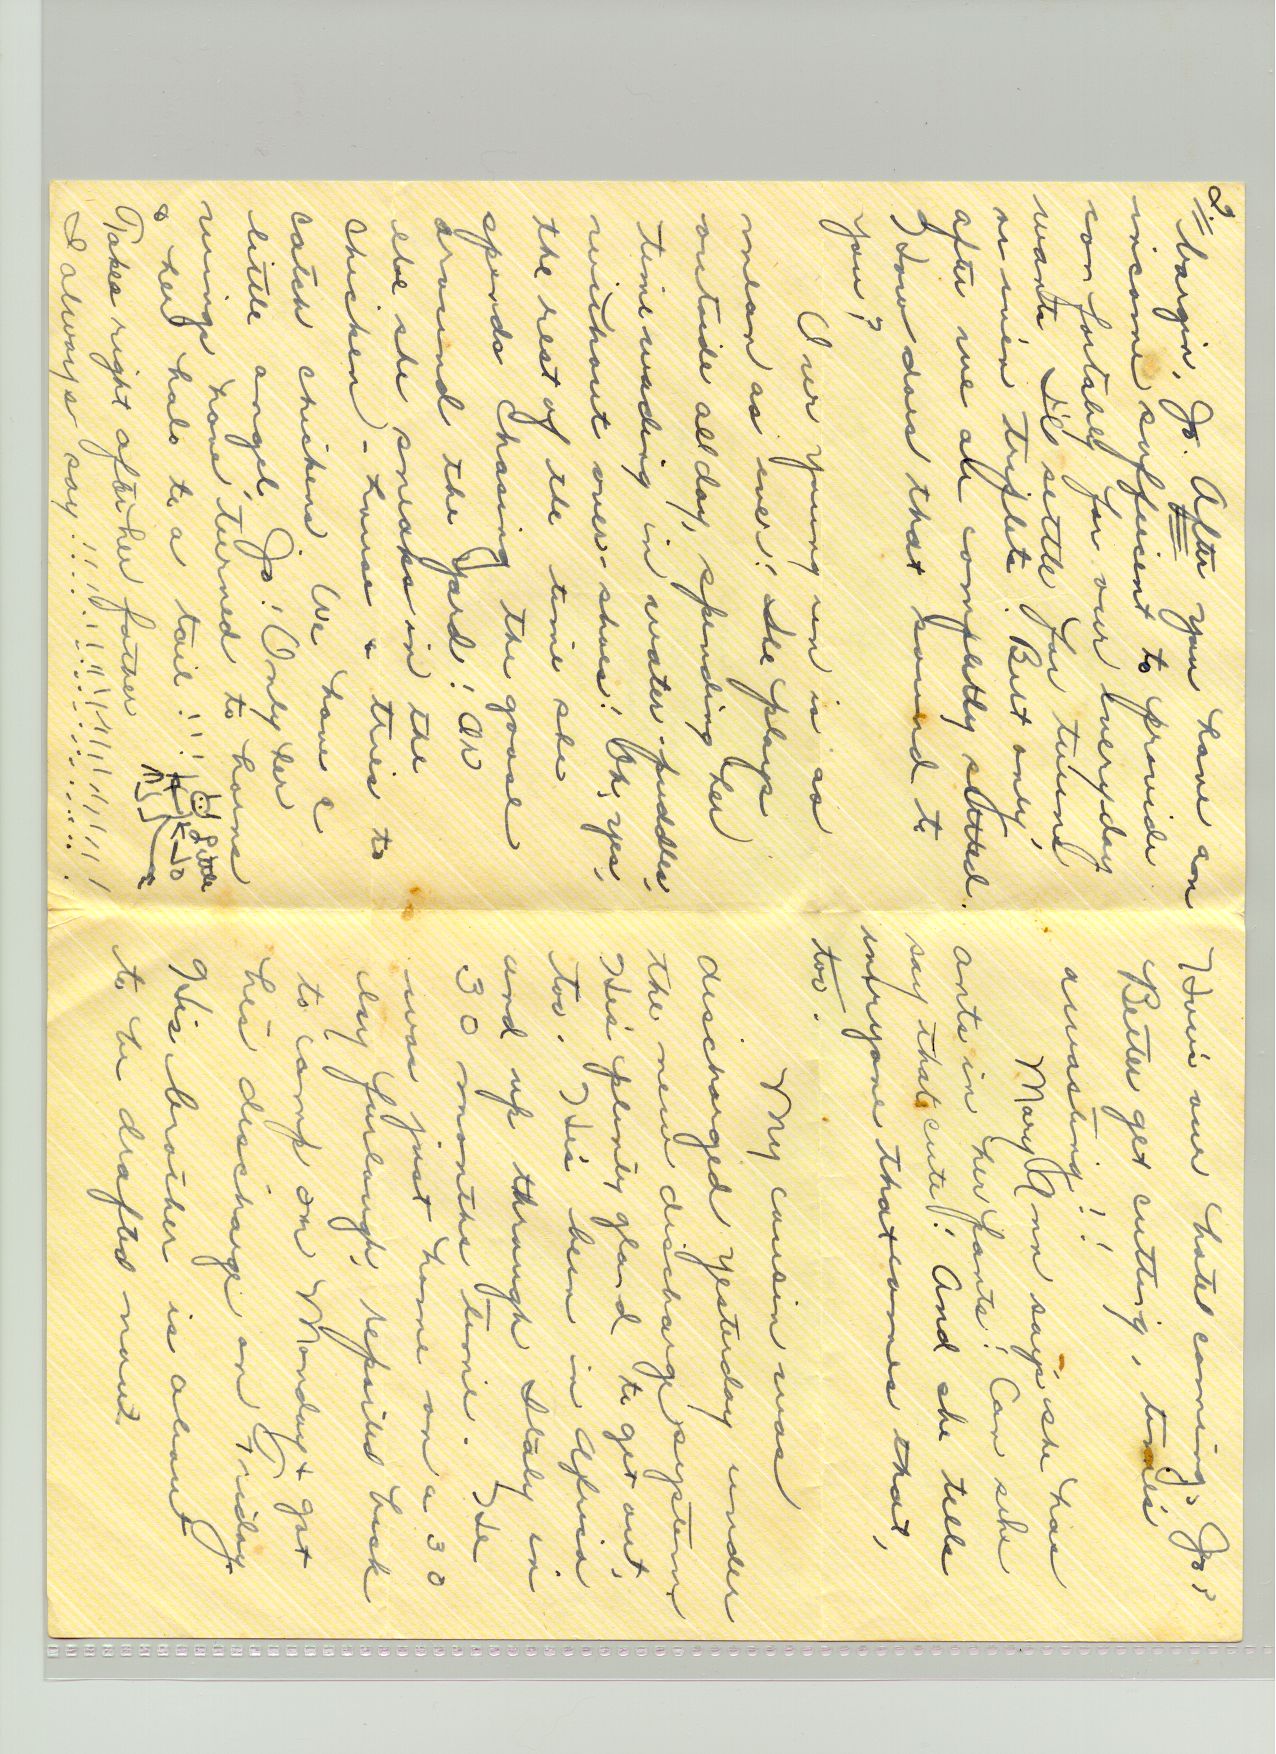 2.
bargin, Jo. After you have an
income sufficient to provide
comfortably for our everyday
wants I'll settle for twins
or even triplets. But only,
after we are completly settled.
How does that sound to
you?
Our young'un is as
mean as ever! She plays
outside all day, spending her
time wading in water-puddles,
without over-shoes! Oh, yes,
the rest of the time she
spends chasing the goose
around the yard! Or
else she sneaks in the
chicken-house & tries to
catch chickens. We have a
little angel, Jo! Only her
wings have turned to horns
& her halo to a tail!!!
Little
Jo
Takes right after her father
I always say!!!!!!!!!!!!!!!!
How's our hotel coming, Jo?
Better get cutting, time's
awasting!!
Mary Ann says she has
ants in her pants! Can she
say that cute! And she tells
everyone that comes that,
too.
My cousin was
discharged yesterday under
the new discharge system.
He's plenty glad to get out,
too. He's been in Africa
and up through Italy in
30 months time. He
was just home on a 30
day furlough, reported back
to camp on Monday & got
his discharge on Friday.
His brother is about
to be drafted now.